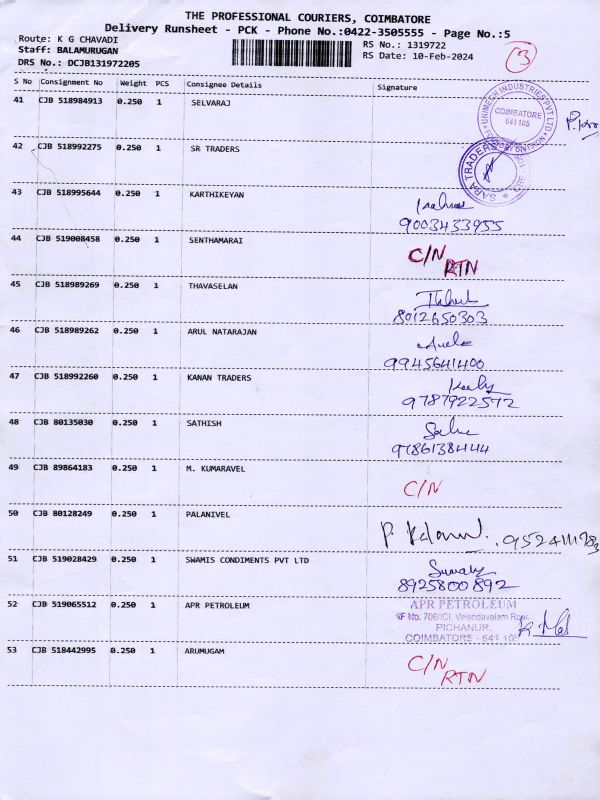 THE PROFESSIONAL COURIERS, COIMBATORE
Delivery Runsheet - PCK - Phone No.:0422-3505555 - Page No.:5
Route: K G CHAVADI
RS No.: 1319722
Staff: BALAMURUGAN
RS Date: 10-Feb-2024
3
DRS No.: DCJB131972205
S No Consignment No Weight PCS Consignee Details Signature
41 CJB 518984913 0.250 1 SELVARAJ
UNIMECH INDUSTRIES PVT LTD
COIMBATORE
641 105
42 CJB 518992275 0.250 1 SR TRADERS
SABA TRADERS
43 CJB 518995644 0.250 1 KARTHIKEYAN
9003433955
44 CJB 519008458 0.250 1 SENTHAMARAI
C/N
RTN
45 CJB 518989269 0.250 1 THAVASELAN
8012650303
46 CJB 518989262 0.250 1 ARUL NATARAJAN
9945641400
47 CJB 518992260 0.250 1 KANAN TRADERS
9787922572
48 CJB 80135030 0.250 1 SATHISH
9786138444
49 CJB 89864183 0.250 1 M. KUMARAVEL
C/N
50 CJB 80128249 0.250 1 PALANIVEL
51 CJB 519028429 0.250 1 SWAMIS CONDIMENTS PVT LTD
8925800892
52 CJB 519065512 0.250 1 APR PETROLEUM
APR PETROLEUM
SF No. 706/1C1, Velandavalam Road,
PICHANUR,
COIMBATORE - 641 105
53 CJB 518442995 0.250 1 ARUMUGAM
C/N
RTN